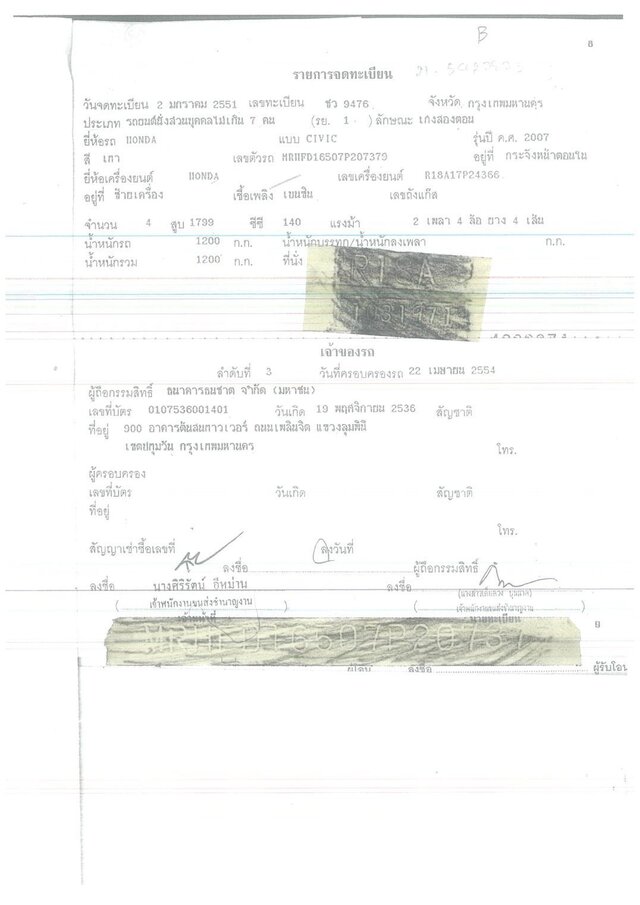 B
8
รายการจดทะเบียน
วันจดทะเบียน 2 มกราคม 2551 เลขทะเบียน ชว 9476 จังหวัด กรุงเทพมหานคร
ประเภท รถยนต์นั่งส่วนบุคคลไม่เกิน 7 คน (รย. 1 ) ลักษณะ เก๋งสองตอน
ยี่ห้อรถ HONDA แบบ CIVIC รุ่นปี ค.ศ. 2007
สี เทา เลขตัวรถ MRHFD16507P207379 อยู่ที่ กระจังหน้าตอนใน
ยี่ห้อเครื่องยนต์ HONDA เลขเครื่องยนต์ R18A17P24366
อยู่ที่ ซ้ายเครื่อง เชื้อเพลิง เบนซิน เลขถังแก๊ส
จำนวน 4 สูบ 1799 ซีซี 140 แรงม้า 2 เพลา 4 ล้อ ยาง 4 เส้น
น้ำหนักรถ 1200 ก.ก. น้ำหนักบรรทุก/น้ำหนักลงเพลา ก.ก.
น้ำหนักรวม 1200 ก.ก. ที่นั่ง
เจ้าของรถ
ลำดับที่ 3 วันที่ครอบครองรถ 22 เมษายน 2554
ผู้ถือกรรมสิทธิ์ ธนาคารธนชาต จำกัด (มหาชน)
เลขที่บัตร 0107536001401 วันเกิด 19 พฤศจิกายน 2536 สัญชาติ
ที่อยู่ 900 อาคารต้นสนทาวเวอร์ ถนนเพลินจิต แขวงลุมพินี
เขตปทุมวัน กรุงเทพมหานคร
โทร.
ผู้ครอบครอง
เลขที่บัตร วันเกิด สัญชาติ
ที่อยู่
โทร.
สัญญาเช่าซื้อเลขที่ ลงวันที่
ลงชื่อ ผู้ถือกรรมสิทธิ์
ลงชื่อ นางศิริรัตน์ อีหม่าน ลงชื่อ
( เจ้าพนักงานขนส่งชำนาญงาน ) ( เจ้าพนักงานขนส่งชำนาญงาน )
นายทะเบียน
9
ลงชื่อ ผู้รับโอน